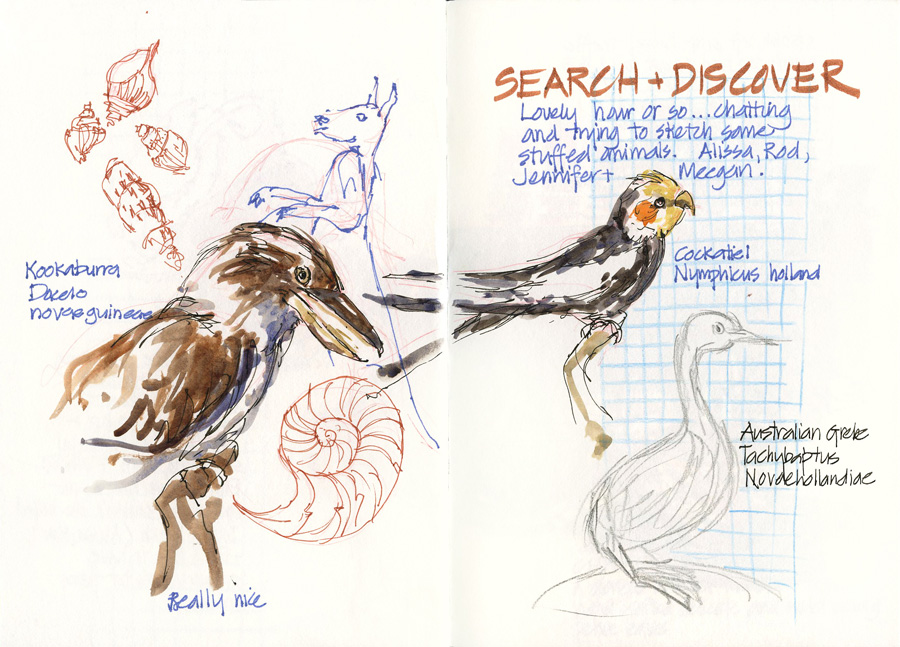 Kookaburra
Dacelo
novaeguineae
Really nice
SEARCH + DISCOVER
Lovely hour or so... chatting
and trying to sketch some
stuffed animals. Alissa, Rod,
Jennifer + Meegan.
Cockatiel
Nymphicus holland
Australian Grebe
Tachybaptus
Novaehollandiae